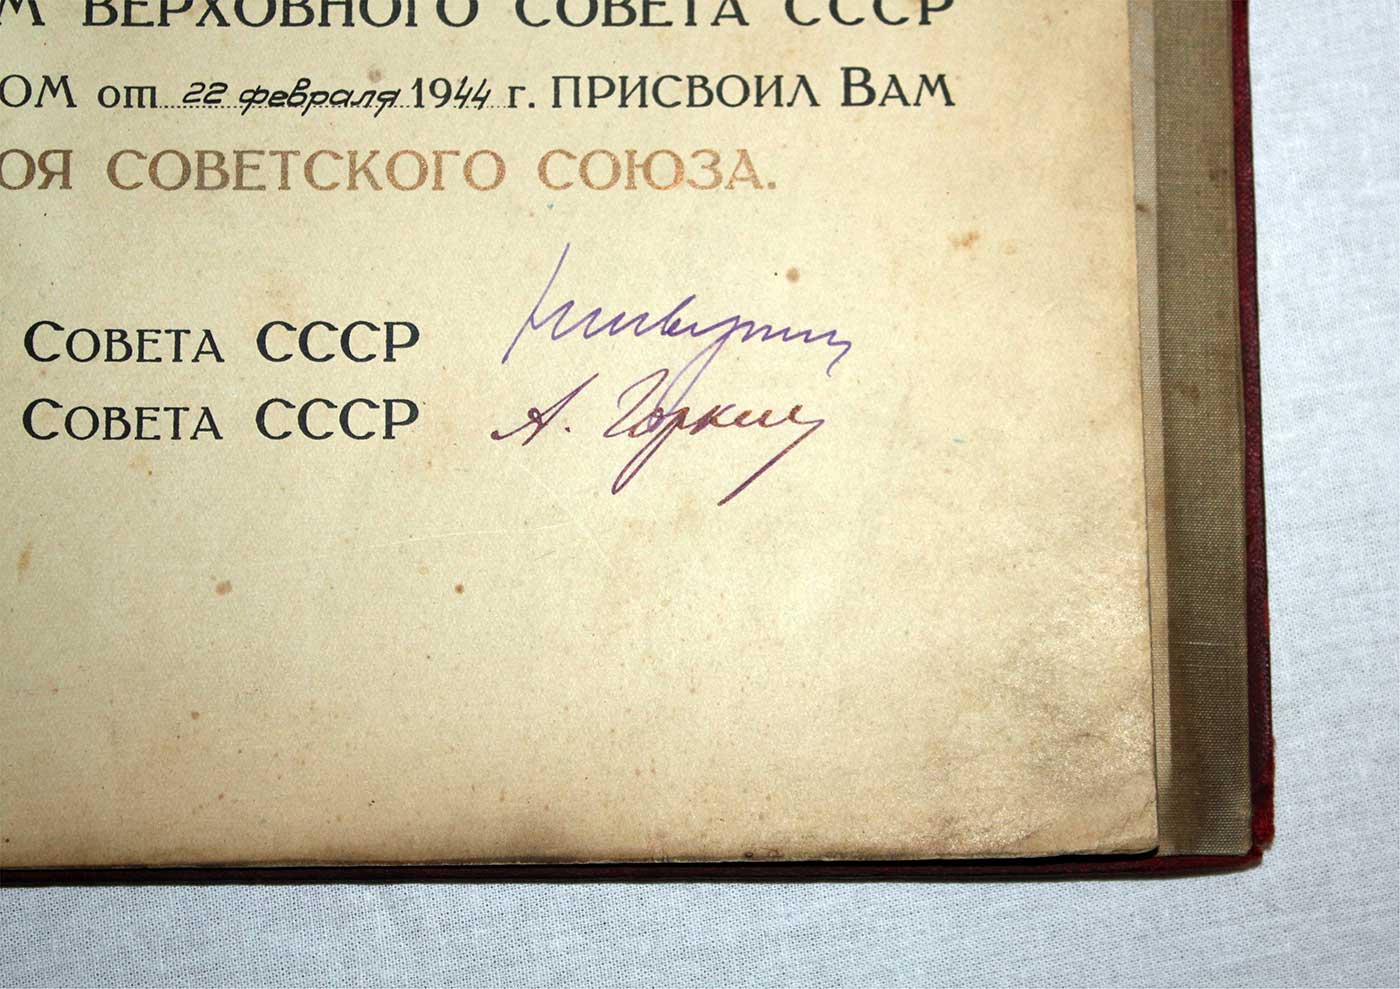 М ВЕРХОВНОГО СОВЕТА СССР
ОМ от 22 февраля 1944 г. ПРИСВОИЛ ВАМ
ОЯ СОВЕТСКОГО СОЮЗА.
СОВЕТА СССР
СОВЕТА СССР А. Горкин